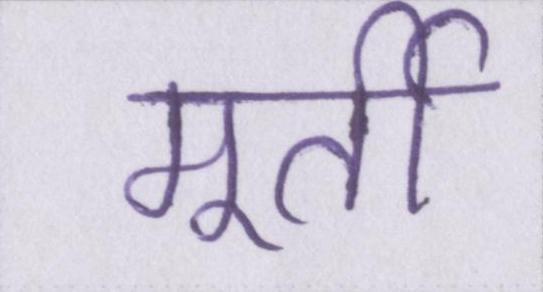 मूर्ती